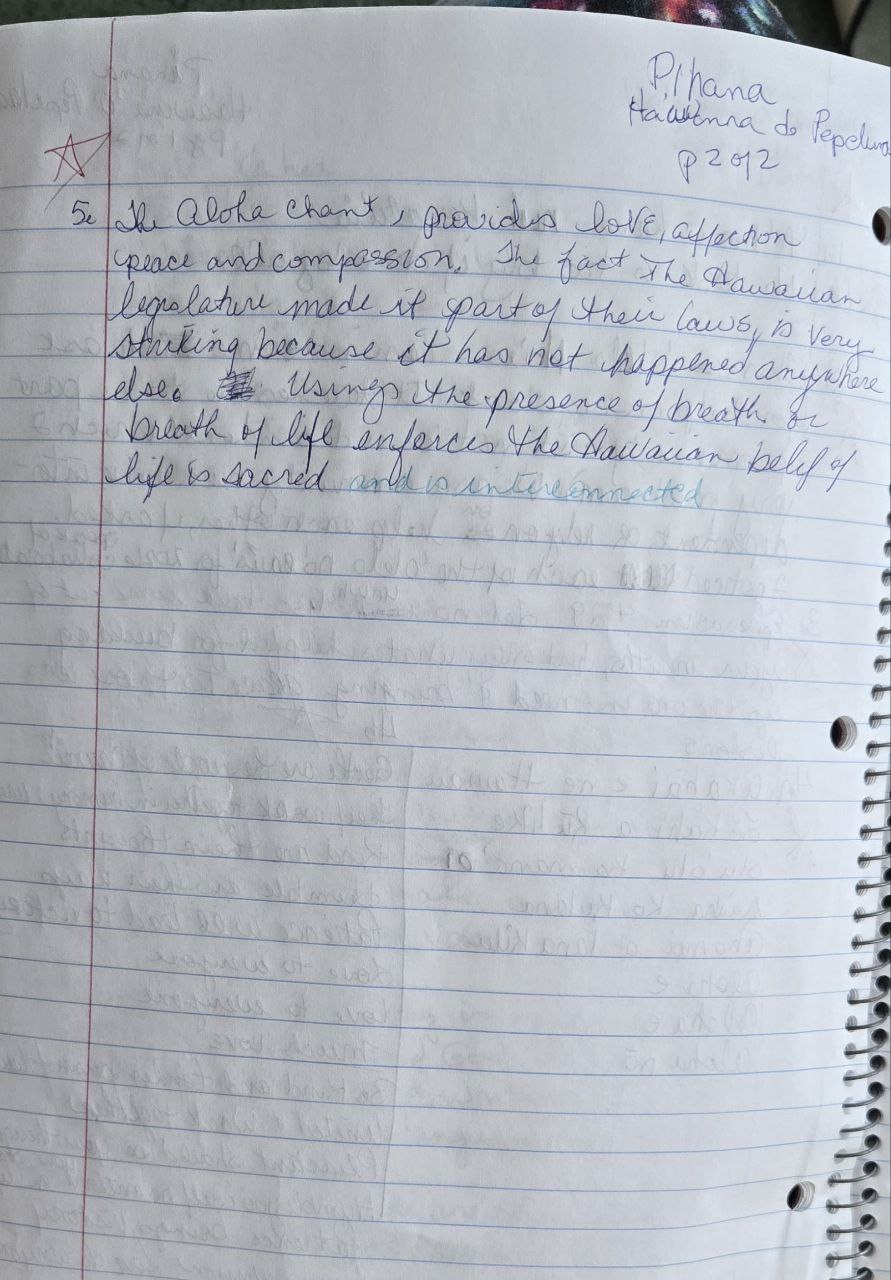 Pilhana
Haʻawina do Pepeluna
p 2 of 2
5. The Aloha chant, provides love, affection
peace and compassion. The fact The Hawaiian
legislature made it part of their laws, is very
striking because it has not happened anywhere
else. Usings the presence of breath or
breath of life enforces the Hawaiian belef of
life is sacred and is interconnected